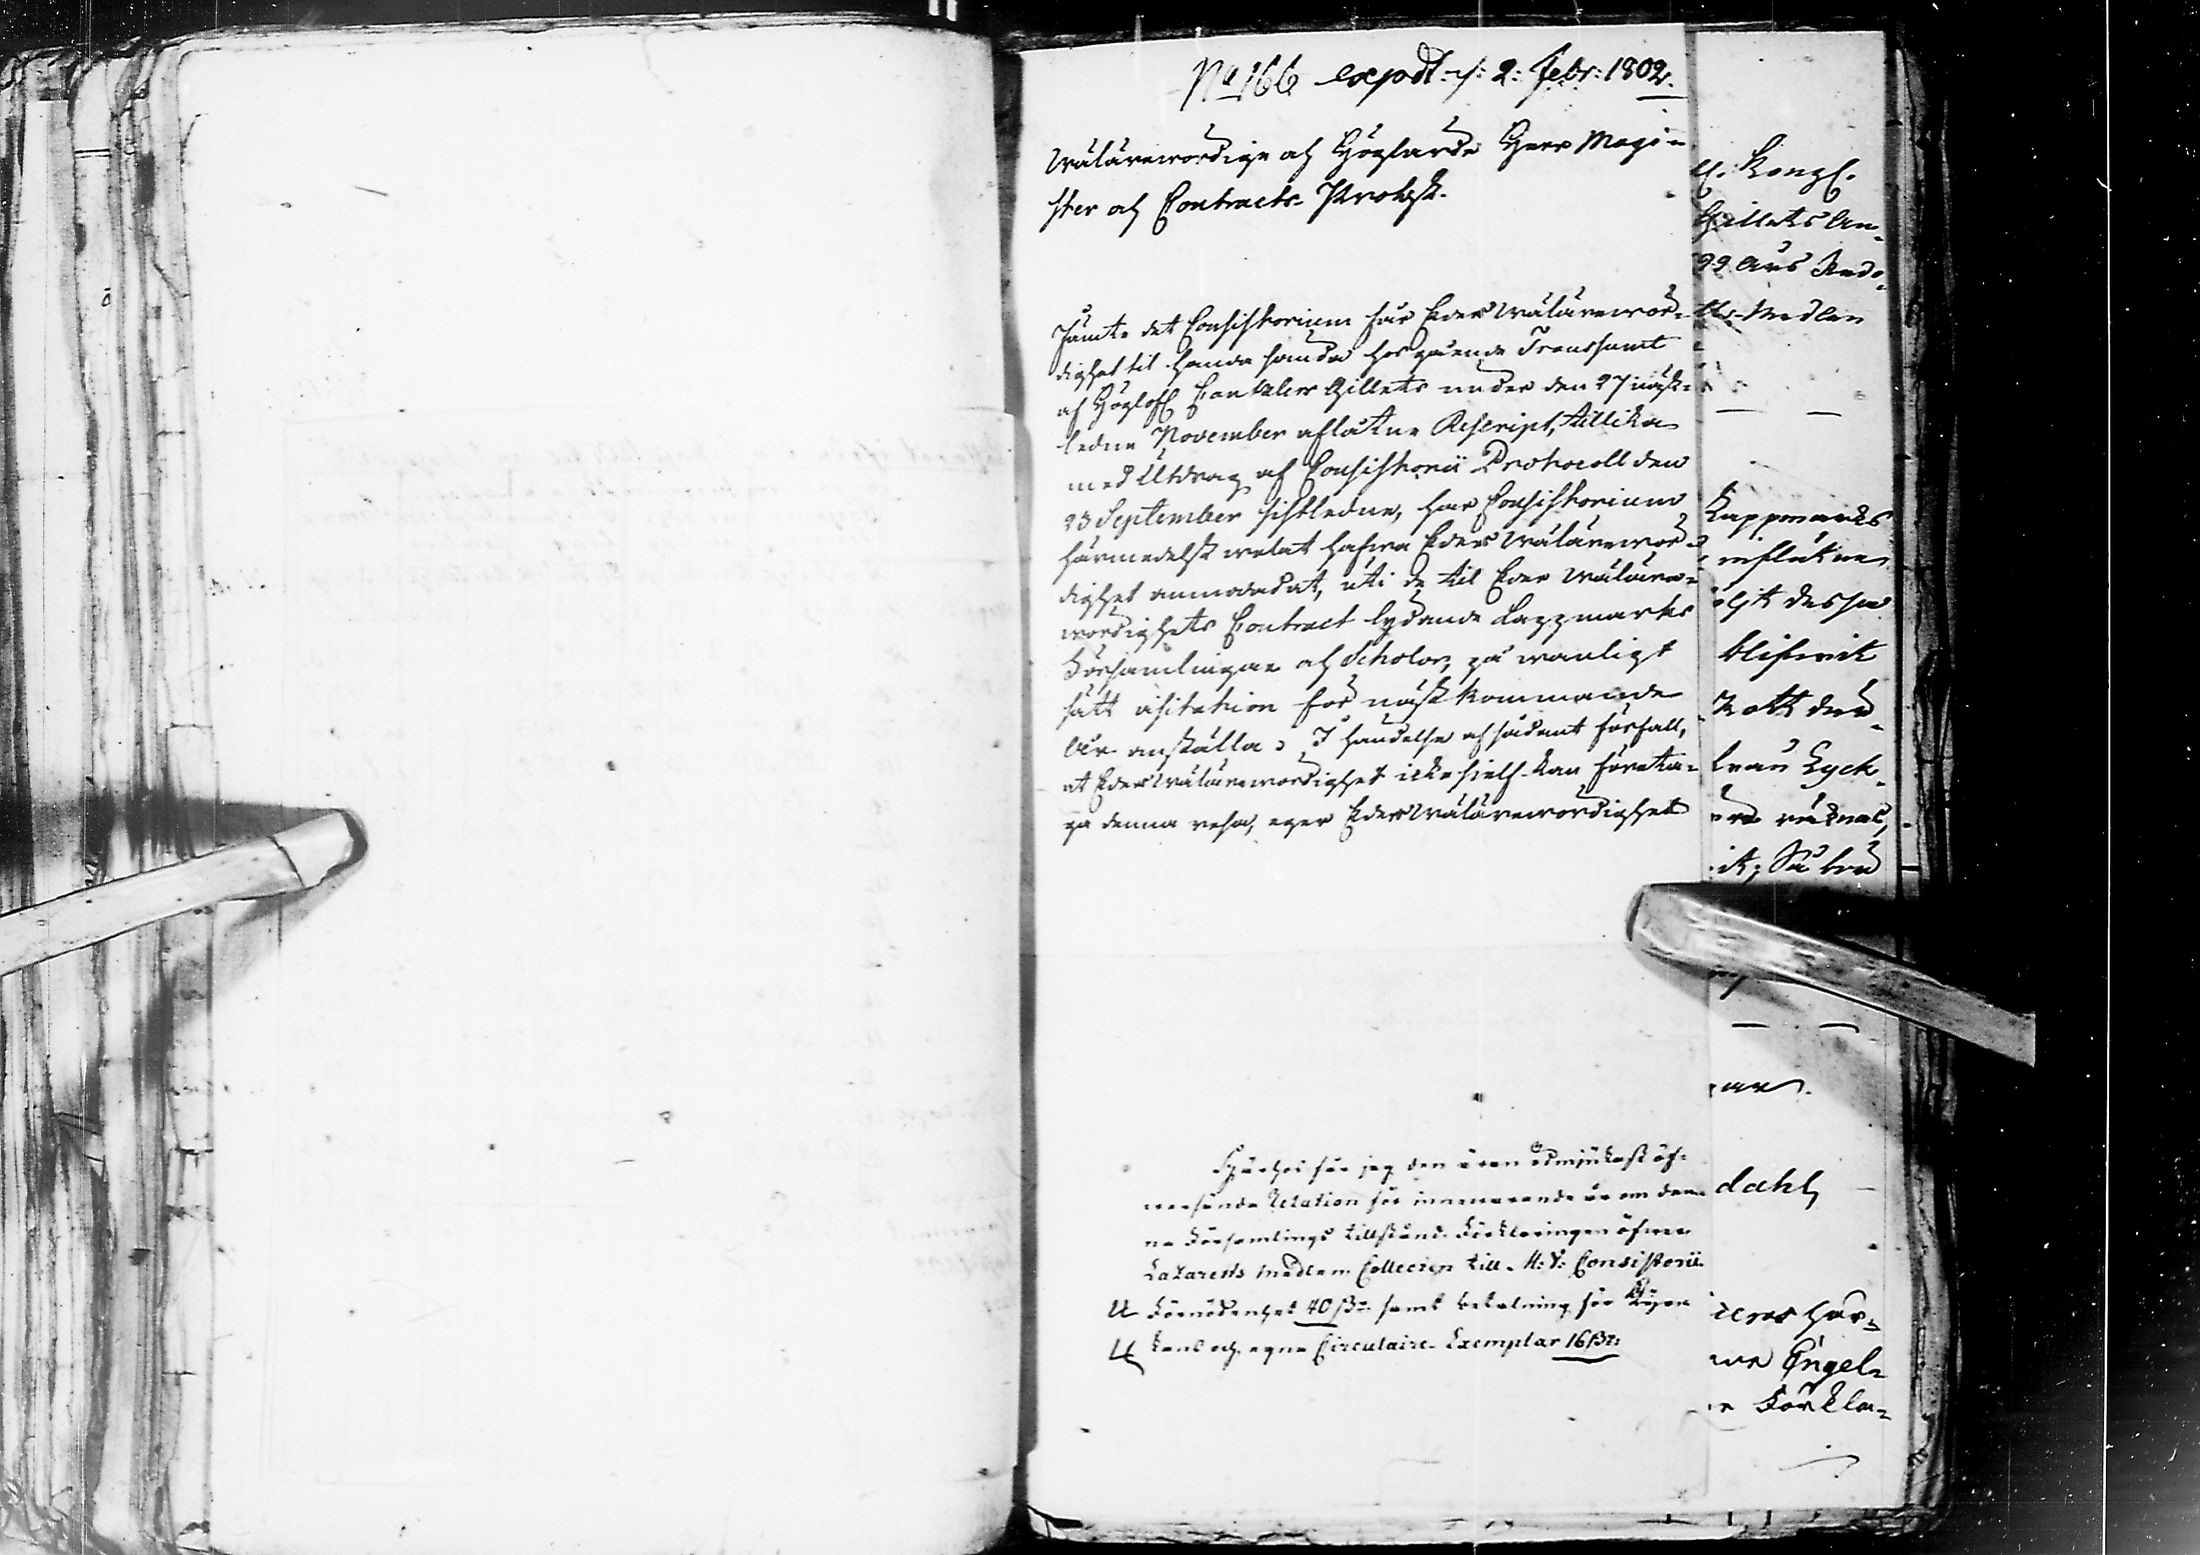 No 166 expdt d: 2: Febr: 1802.
Wälärewördige och Höglärde Herr Magi-
ster och Contracts-Probst.
Jämte det Consistorium får Eders Wälärewör-
dighet til handa sända hos gående Transsumt
af Höglofl Cantzlers Gillets under den 27 näst-
ledne November aflåtne Rescript, tillika
med Utdrag af Consistorii Protocoll den
23 September sistledne, har Consistorium
härmedelst welat hafwa Eders Wälärewör-
dighet anmodadt, uti de til Eder Wäläre-
wördighets Contract lydande Lappmarks
Församlingar och Scholor, på wanligt
sätt visitation för nästkommande
år anställa; I händelse af sådant förfall,
at Eders Wälärewördighet icke sielf kan företa-
ga denna resa, eger Eders Wälärewördighet
får jag den äran ödmjukast öf-
wersända Relation för innewarande år om den-
na Församlings tillstånd. Förklaringen öfwer
Lazaretts medlem Collecten till M: V: Consistorii
förnödenhet 40 ßr: samt betalning för
och egna Circulaire-Exemplar 16 ßr:
Kongl.
Gillets An-
99 års Redo-
Medlen
Lappmarks
influtne
dessa
blifwit
Kott den
Lyck-
räknat,
it; Så
dahl,
har-
Engel-
Förkla-